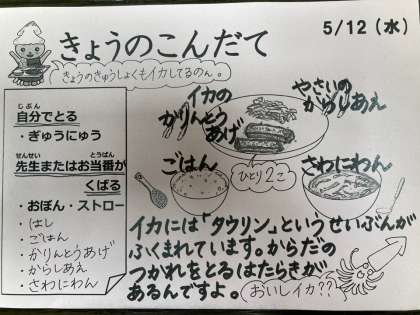 5/12（水）
きょうのこんだて
きょうのきゅうしょくもイカしてるのん。
じぶん
自分でとる
・ぎゅうにゅう
せんせい とうばん
先生またはお当番が
くばる
・おぼん・ストロー
・はし
・ごはん
・かりんとうあげ
・からしあえ
・さわにわん
イカの
かりんとう
あげ
やさいの
からしあえ
ひとり2こ
ごはん
さわにわん
イカには「タウリン」というせいぶんが
ふくまれています。からだの
つかれをとるはたらきが
あるんですよ。
おいしイカ??